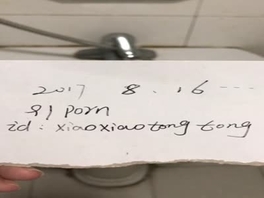 2017 8.16 ---
91 porn
id: xiaoxiaotongtong